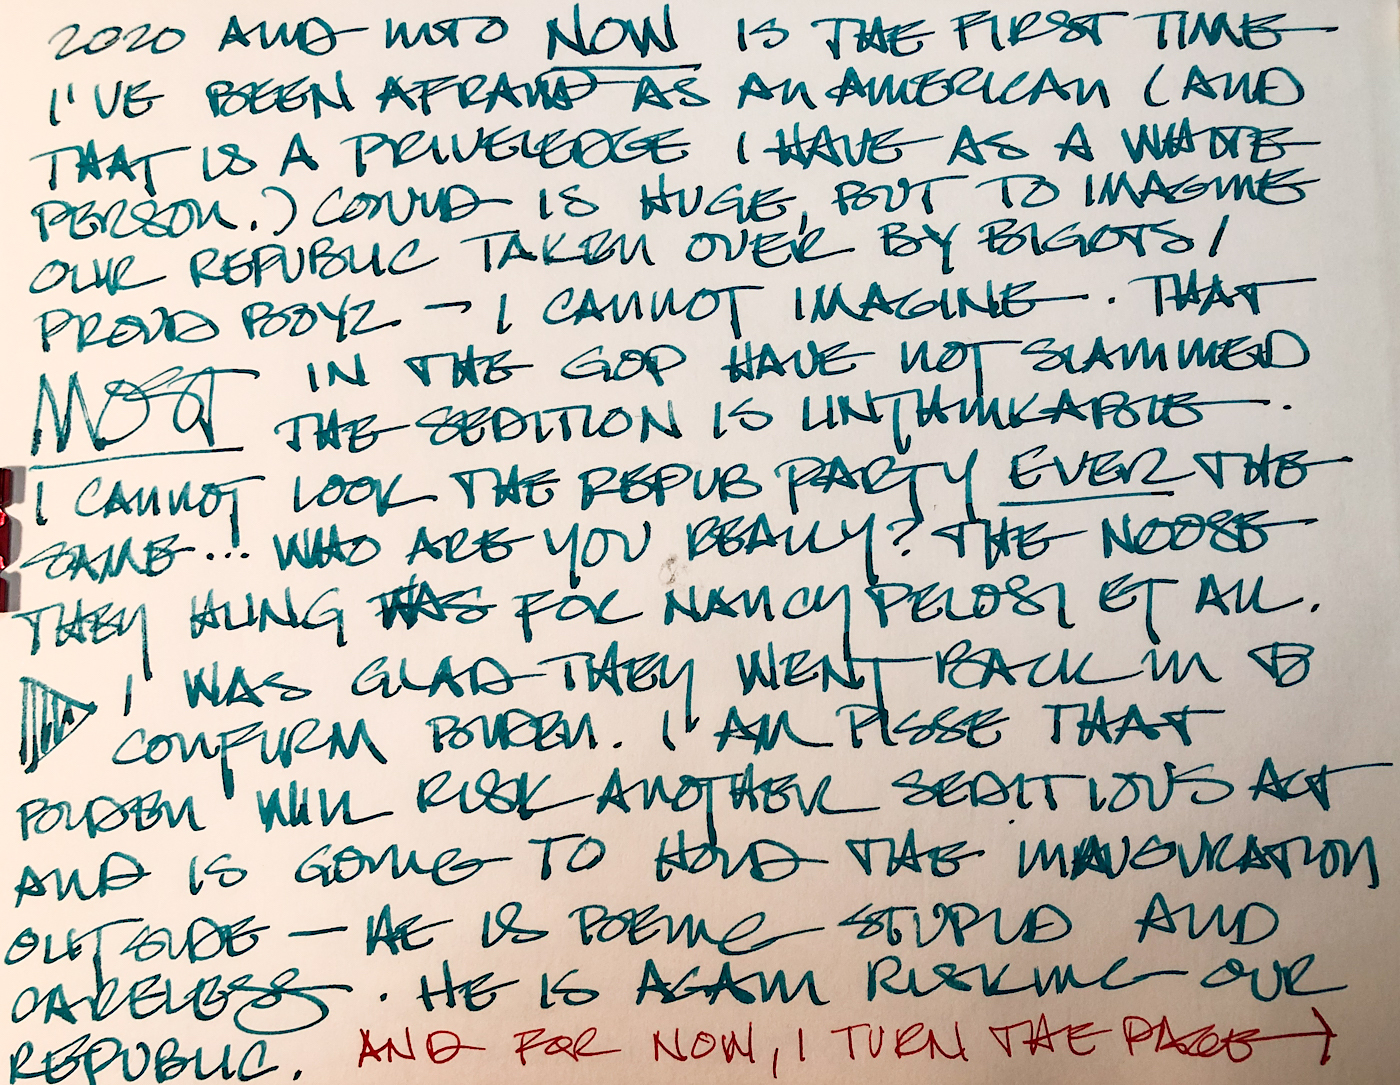 2020 AND INTO NOW IS THE FIRST TIME
I'VE BEEN AFRAID AS AN AMERICAN (AND
THAT IS A PRIVELEDGE I HAVE AS A WHITE
PERSON.) COVID IS HUGE, BUT TO IMAGINE
OUR REPUBLIC TAKEN OVER BY BIGOTS/
PROUD BOYZ - I CANNOT IMAGINE. THAT
MOST IN THE GOP HAVE NOT SLAMMED
THE SEDITION IS UNTHINKABLE.
I CANNOT LOOK THE REPUB PARTY EVER THE
SAME... WHO ARE YOU REALLY? THE NOOSE
THEY HUNG WAS FOR NANCY PELOSI ET ALL.
I WAS GLAD THEY WENT BACK IN TO
CONFIRM BIDEN. I AM PISSE THAT
BIDEN WILL RISK ANOTHER SEDITIOUS ACT
AND IS GOING TO HOLD THE INAUGURATION
OUTSIDE — HE IS BEING STUPID AND
CARELESS. HE IS AGAIN RISKING OUR
REPUBLIC. AND FOR NOW, I TURN THE PAGE →